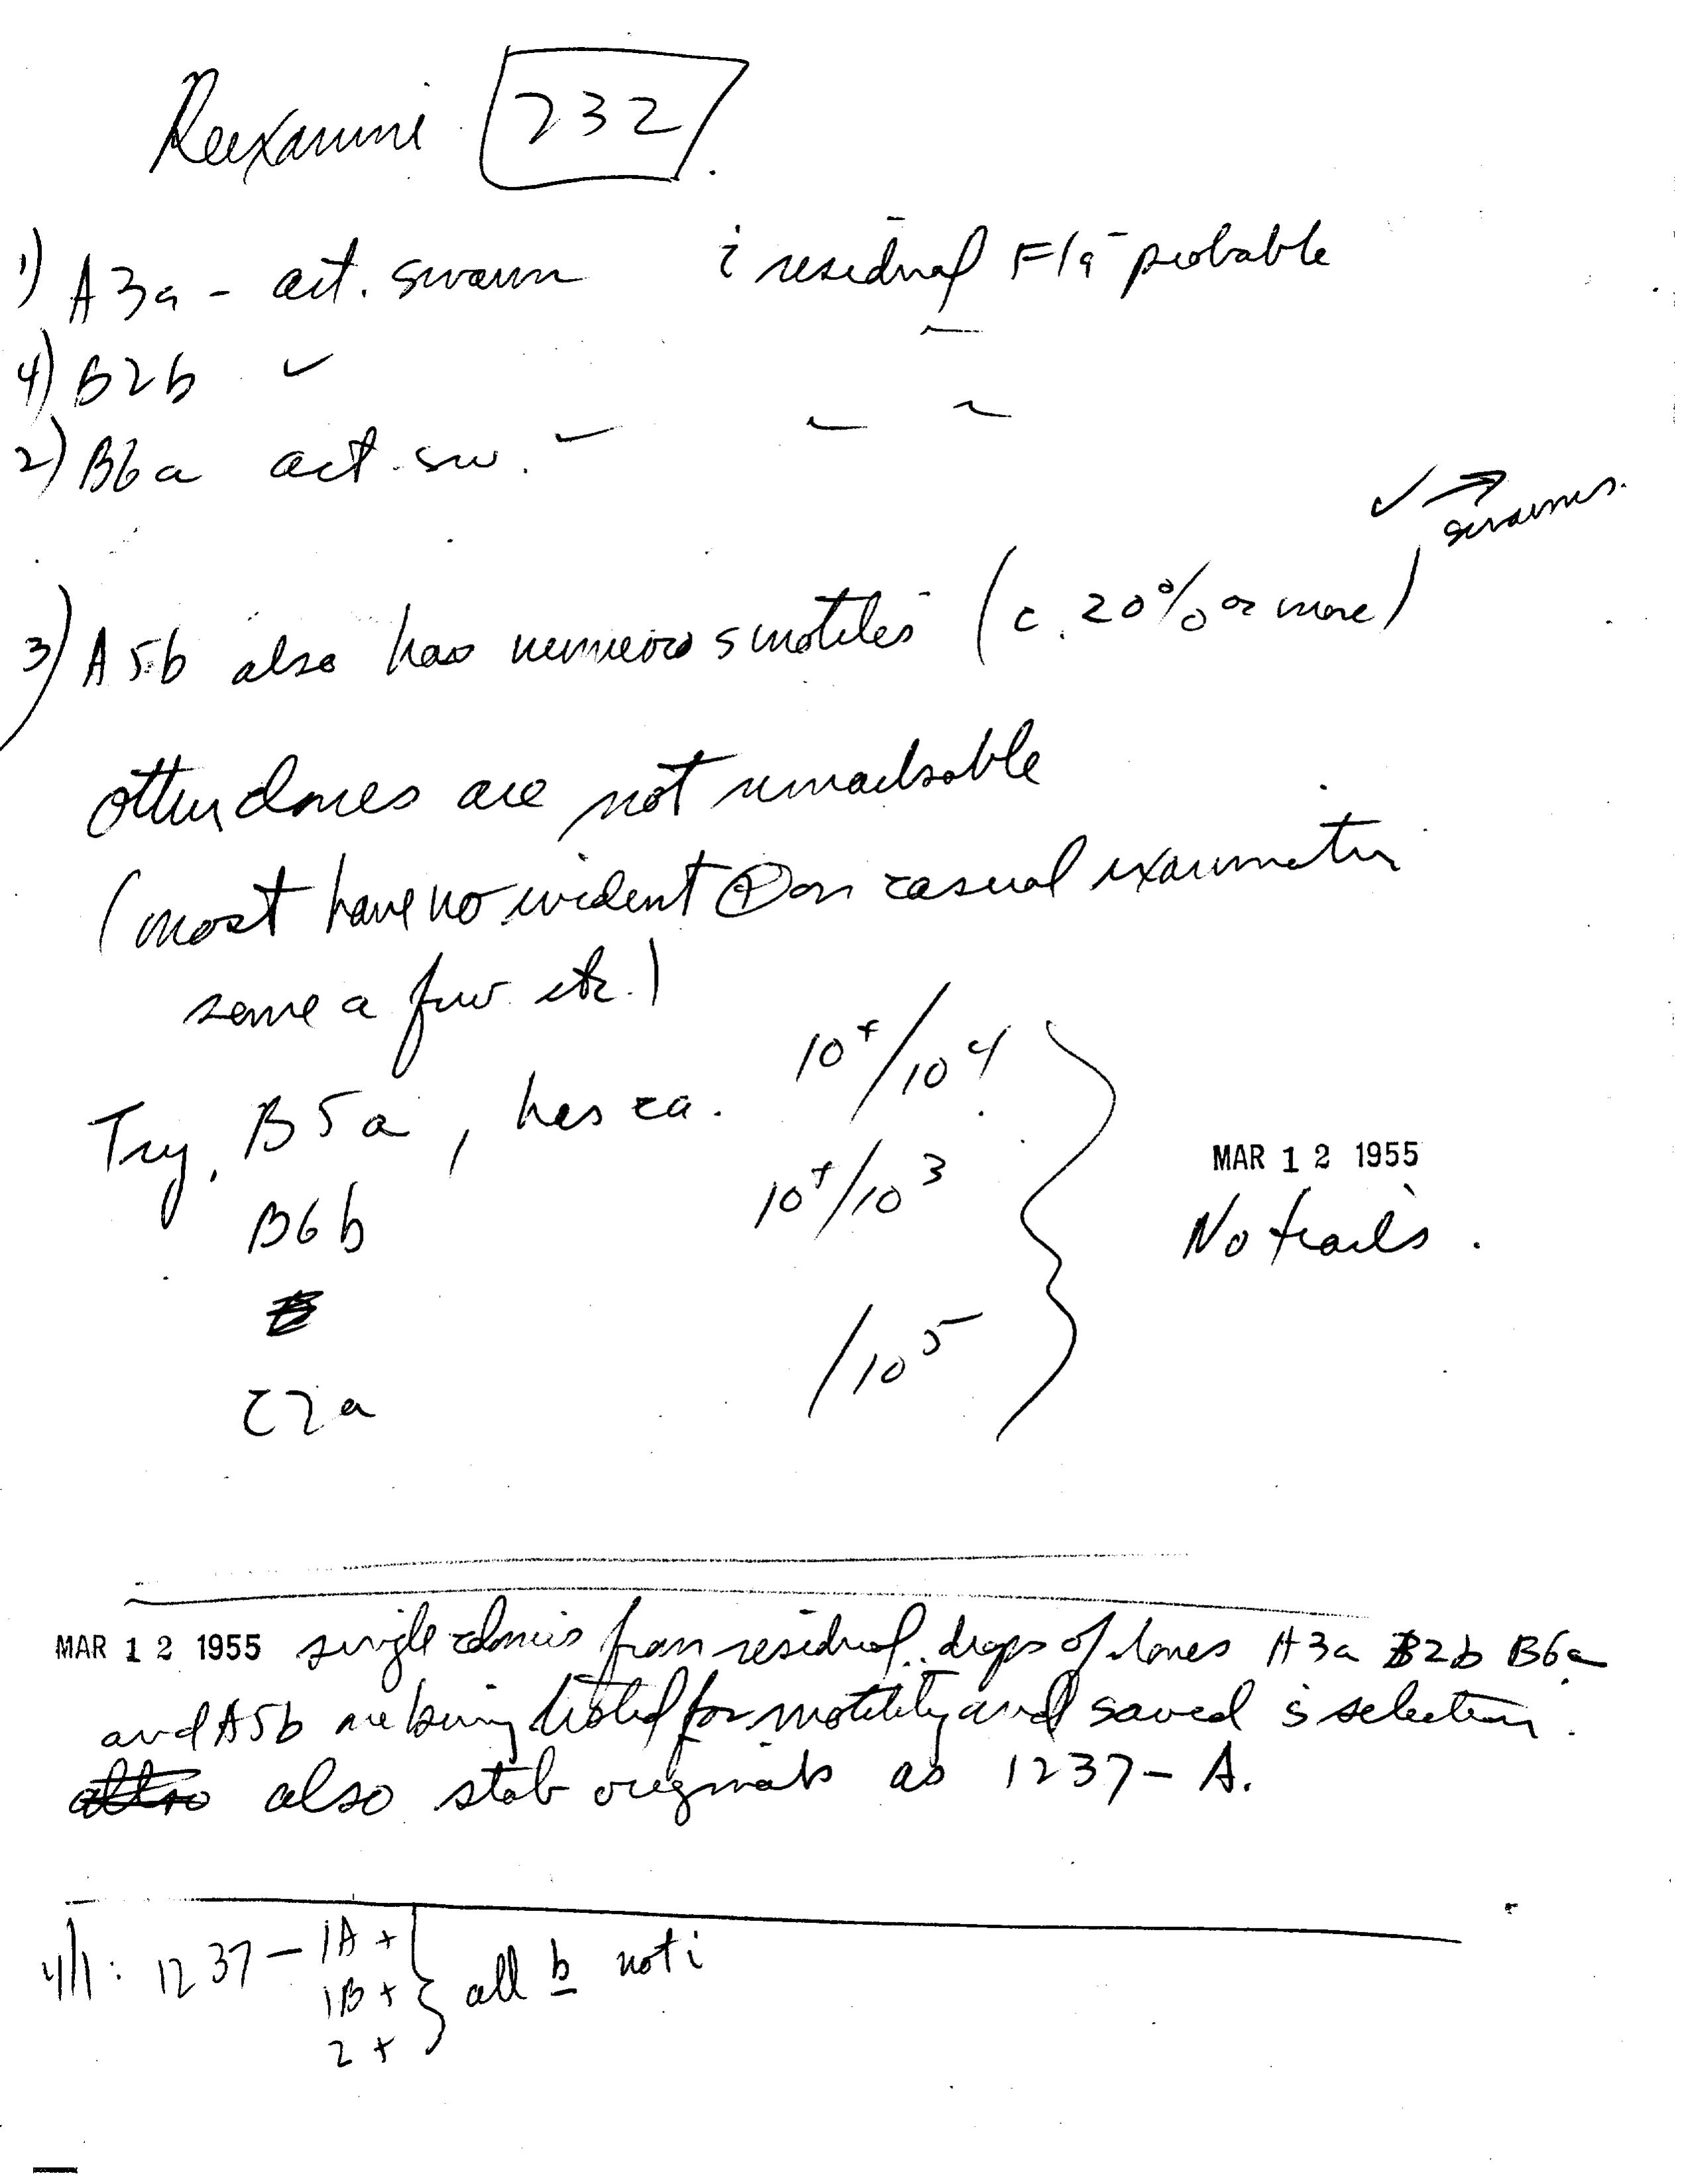 Reexamine 232.
1) A3a - act. swarm c̄ residual Fla⁻ probable
4) B2b ✓
2) B6a act. sw.
✓ → swarms.
3) A5b also has numerous motiles (c. 20% or more)
other clones are not remarkable
(most have no evident ⊕ on casual examination
some a few etc.)
Try, B5a, has ca. 10⁺/10⁴
B6b 10⁺/10³
C2a /10⁵
MAR 12 1955
No trails.
MAR 12 1955 single colonies from residual drops of clones A3a B2b B6a
and A5b are being tested for motility and saved s̄ selection.
also stab originals as 1237-A.
4/1: 1237 - 1A +
1B + all b not i
2 +